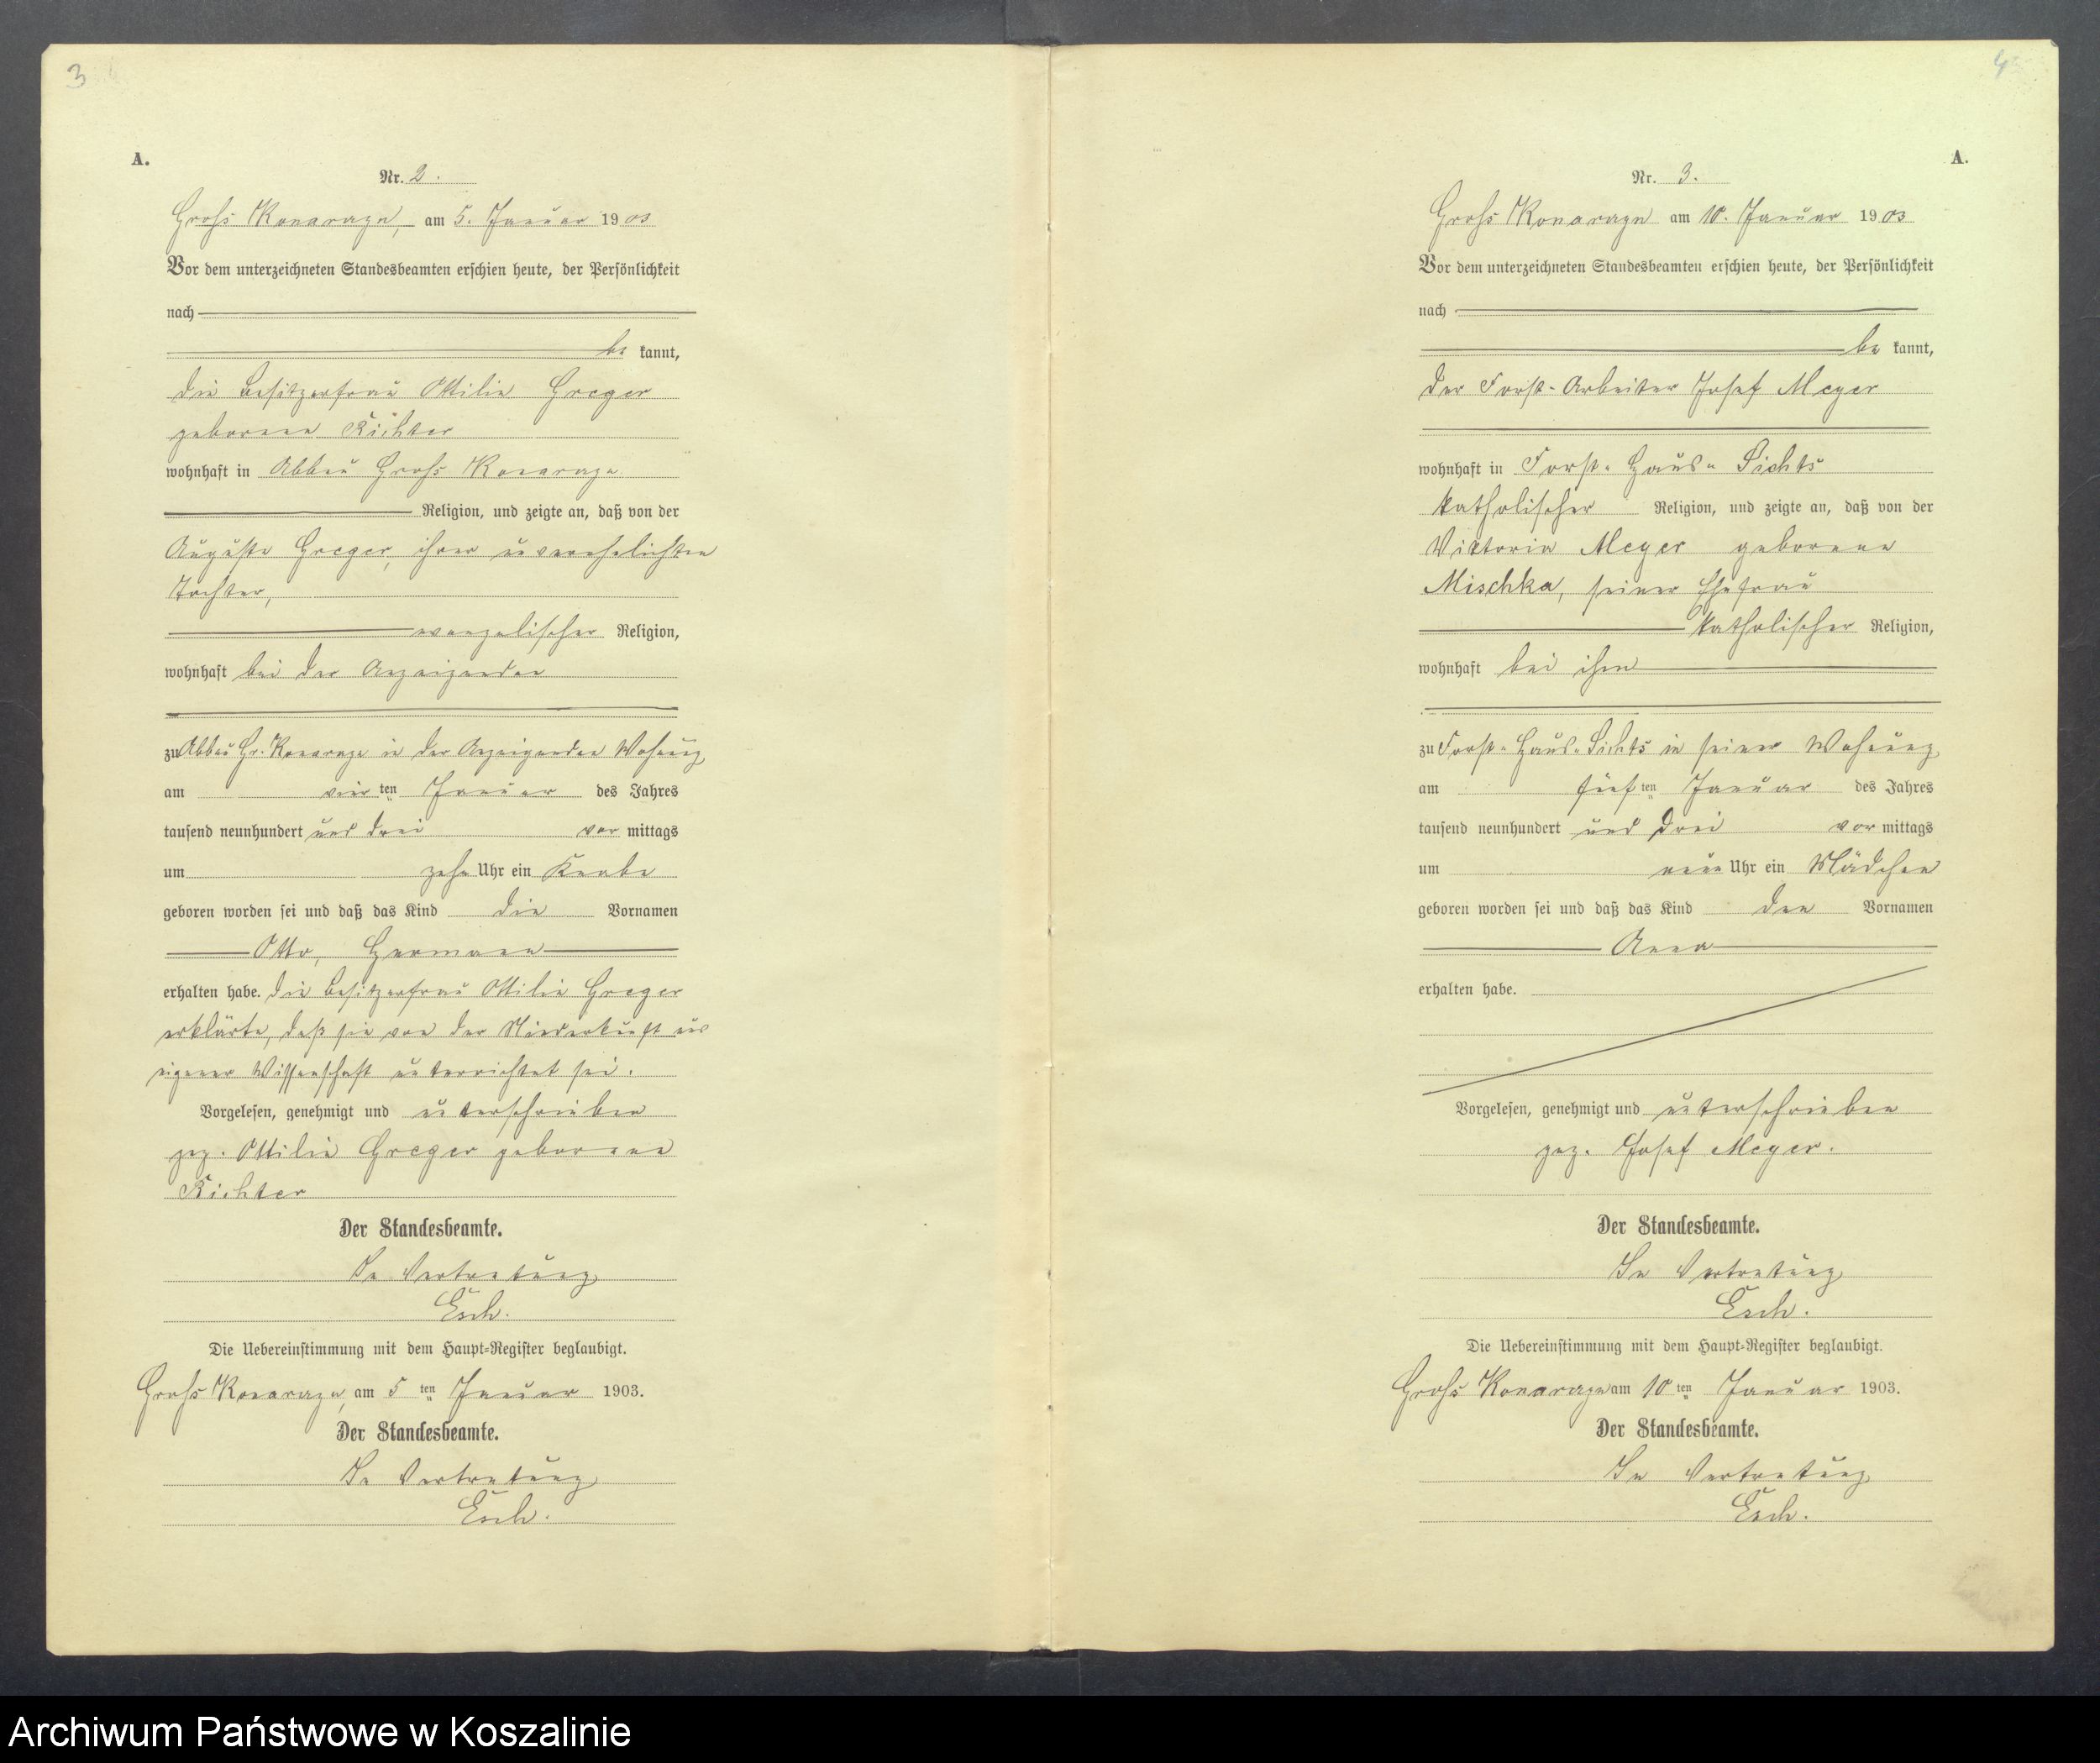 3
A.
Nr. 2.
Groß Konarzyn, am 5. Januar 1903
Vor dem unterzeichneten Standesbeamten erschien heute, der Persönlichkeit
nach
be kannt,
die Besitzerfrau Ottilie Greger
geborene Richter
wohnhaft in Abbau Groß Konarzyn
Religion, und zeigte an, daß von der
Auguste Greger, ihrer unverehelichten
Tochter,
evangelischer Religion,
wohnhaft bei der Anzeigenden
zu Abbau Gr. Konarzyn in der Anzeigenden Wohnung
am vier ten Januar des Jahres
tausend neunhundert und drei vor mittags
um zehn Uhr ein Knabe
geboren worden sei und daß das Kind die Vornamen
Otto, Hermann
erhalten habe. Die Besitzerfrau Ottilie Greger
erklärte, daß sie von der Niederkunft aus
eigener Wissenschaft unterrichtet sei.
Vorgelesen, genehmigt und unterschrieben
gez. Ottilie Greger geborene
Richter
Der Standesbeamte.
In Vertretung
Esch.
Die Uebereinstimmung mit dem Haupt-Register beglaubigt.
Groß Konarzyn, am 5 ten Januar 1903.
Der Standesbeamte.
In Vertretung
Esch.
4
A.
Nr. 3.
Groß Konarzyn am 10. Januar 1903
Vor dem unterzeichneten Standesbeamten erschien heute, der Persönlichkeit
nach
be kannt,
der Forst-Arbeiter Josef Meyer
wohnhaft in Forst-Haus-Lichts
katholischer Religion, und zeigte an, daß von der
Viktoria Meyer geborene
Mischka, seiner Ehefrau
katholischer Religion,
wohnhaft bei ihm
zu Forst-Haus-Lichts in seiner Wohnung
am fünf ten Januar des Jahres
tausend neunhundert und drei vor mittags
um neun Uhr ein Mädchen
geboren worden sei und daß das Kind den Vornamen
Anna
erhalten habe.
Vorgelesen, genehmigt und unterschrieben
gez. Josef Meyer.
Der Standesbeamte.
In Vertretung
Esch.
Die Uebereinstimmung mit dem Haupt-Register beglaubigt.
Groß Konarzyn am 10 ten Januar 1903.
Der Standesbeamte.
In Vertretung
Esch.
Archiwum Państwowe w Koszalinie